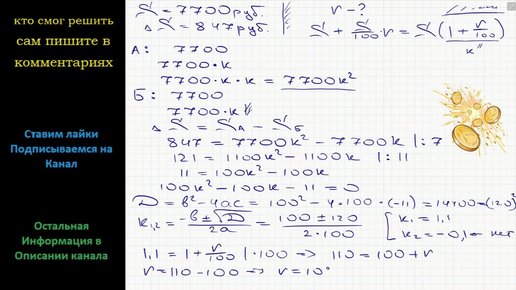 кто смог решить
сам пишите в
комментариях
Ставим лайки
Подписываемся на
Канал
Остальная
Информация в
Описании канала
S = 7700 руб.
ΔS = 847 руб.
r - ?
S + S/100 · r = S(1 + r/100)
k"
А: 7700
7700·k
7700·k·k = 7700k²
Б: 7700
7700·k
ΔS = S_А - S_Б
847 = 7700k² - 7700k |:7
121 = 1100k² - 1100k |:11
11 = 100k² - 100k
100k² - 100k - 11 = 0
D = b² - 4ac = 100² - 4·100·(-11) = 14400 = (120)²
k₁,₂ = (-b ± √D)/2a = (100 ± 120)/(2·100)
k₁ = 1,1
k₂ = -0,1 нет
1,1 = 1 + r/100 |·100 → 110 = 100 + r
r = 110 - 100 → r = 10